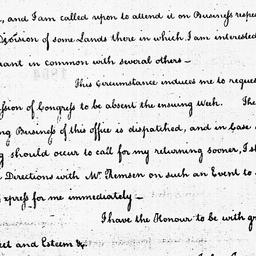 , and I am called upon to attend it on Business respe
Division of some Lands there in which I am interested
rant in common with several others—
This Circumstance induces me to reques
ssion of Congress to be absent the ensuing Week. The
ng Business of this office is dispatched, and in Case
g should occur to call for my returning sooner, I s
Directions with Mr. Remsen on such an Event to
Express for me immediately—
I have the Honour to be with gr
ect and Esteem &c